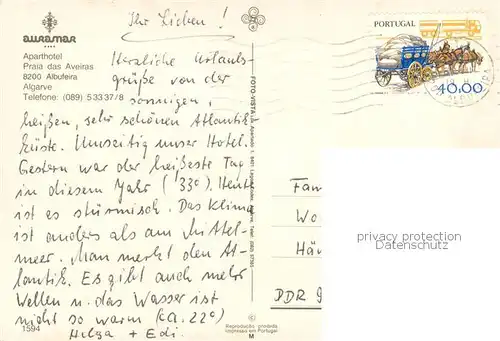 auramar
Aparthotel
Praia das Aveiras
8200 Albufeira
Algarve
Telefone: (089) 5 33 37/8
Ihr Lieben!
Herzliche Urlaubs-
grüße von der
sonnigen,
heißen, sehr schönen Atlantik-
küste. Umseitig unser Hotel.
Gestern war der heißeste Tag
in diesem Jahr (33°). Heute
ist es stürmisch. Das Klima
ist anders als am Mittel-
meer. Man merkt den At-
lantik. Es gibt auch mehr
Wellen u. das Wasser ist
nicht so warm (ca. 22°)
Helga + Edi.
1594
FOTO-VISTA
©
Reprodução proibida
Impresso em Portugal
M
PORTUGAL
40.00
Fam
Wo
Hä
DDR 9
privacy protection
Datenschutz